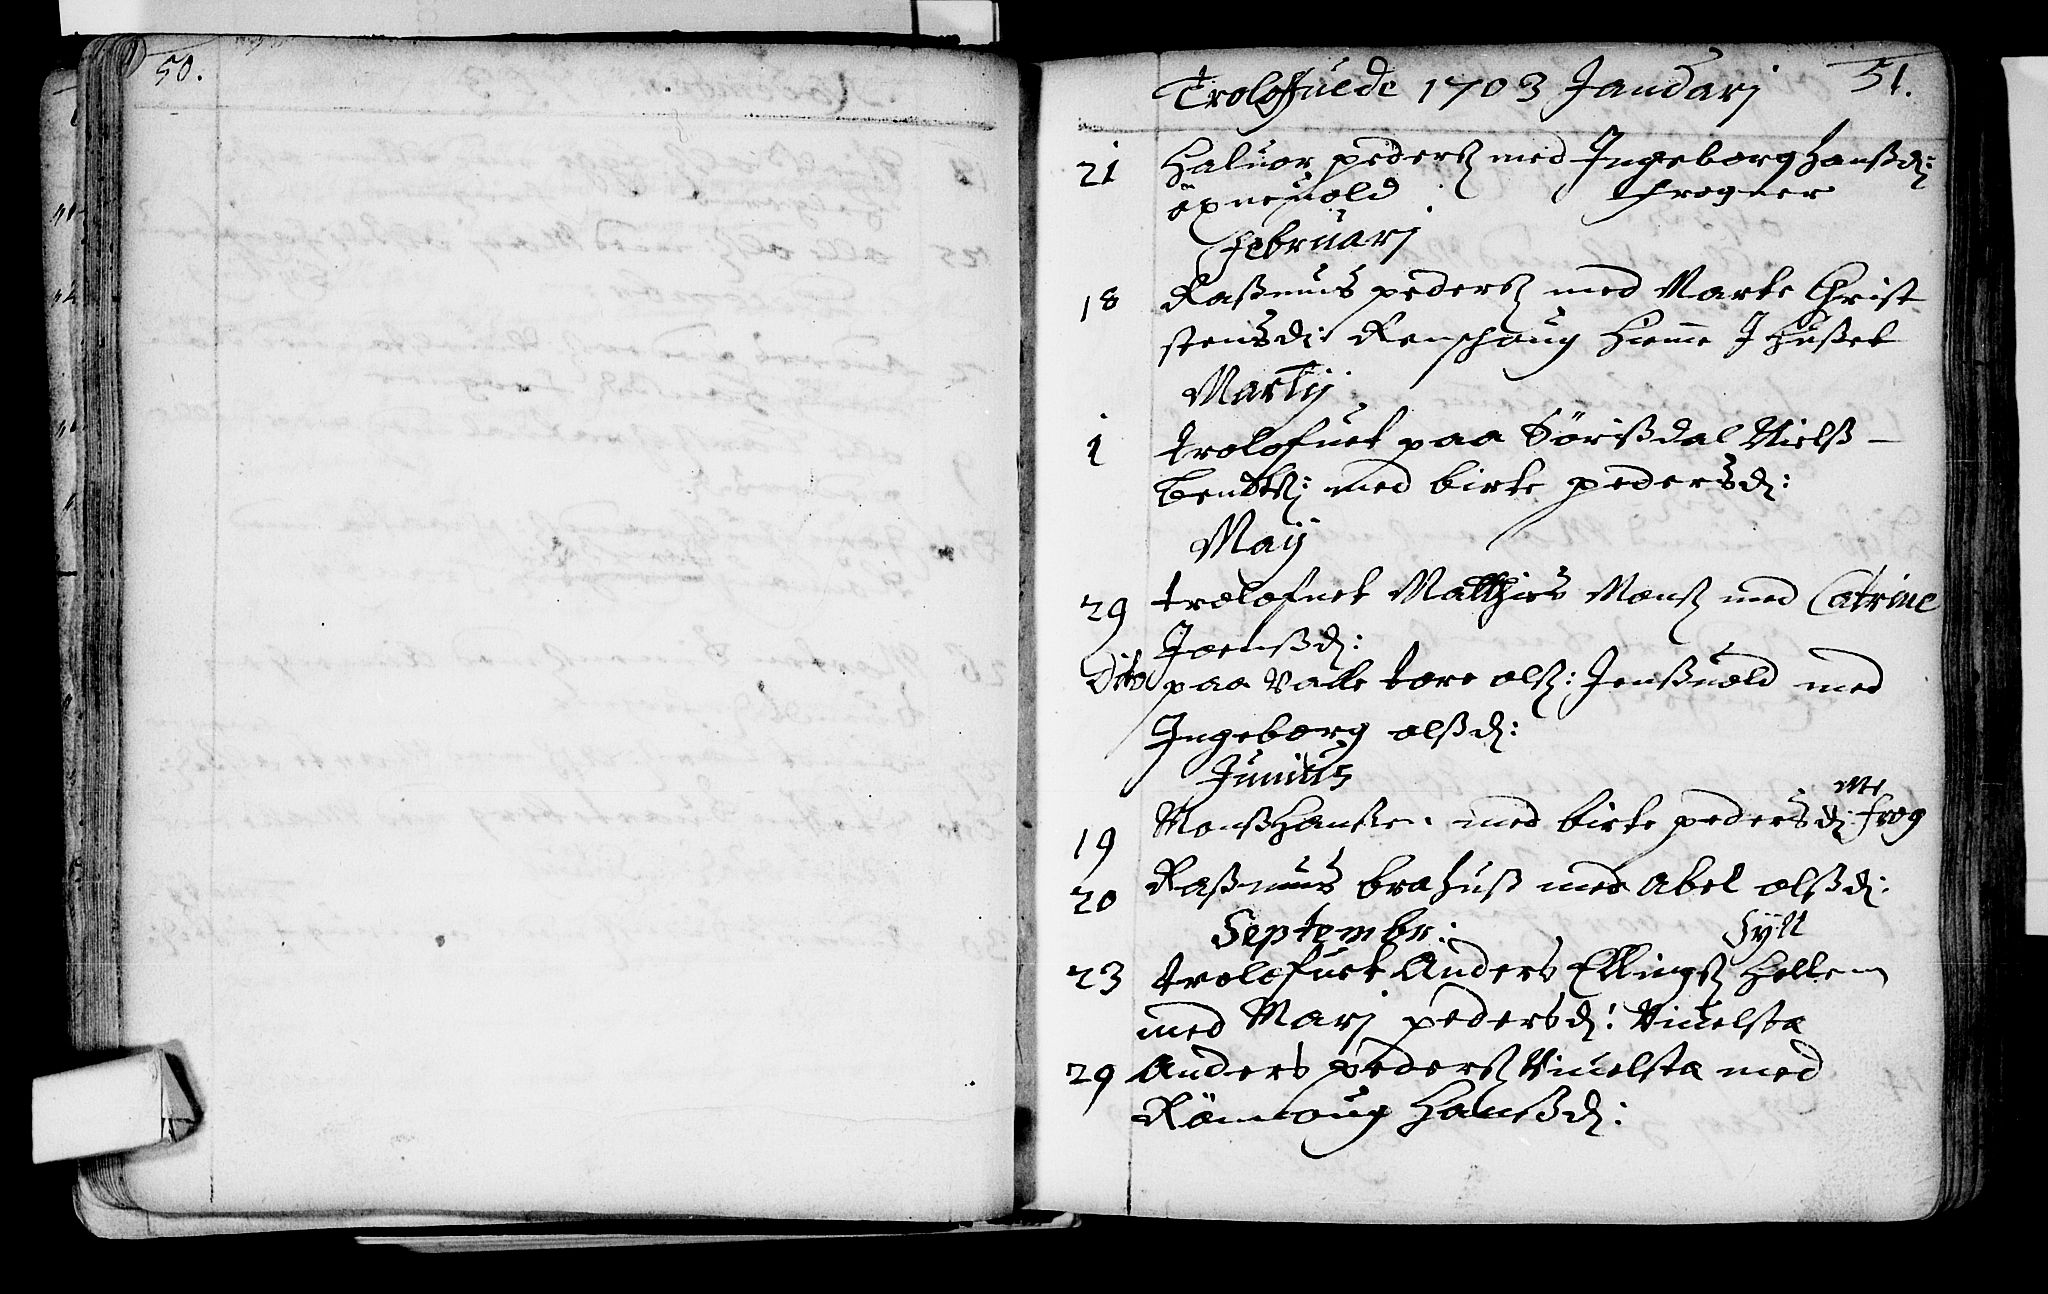 50.
51.
Troloffuede 1703 Januarj
21 Haluor pederß med Ingeborg Hanßd:
öxneuold frogner
Februarj
18 Raßmus pederß med Marte Christ
stensd: Renschoug Hieme J Hußet
Martij
1 trolofuet paa Sörißdal Nielß
bendtß: med birte pedersd:
Maij
29 trolofuet Matthies Monß med Catrine
Joenßd:
Dito paa Valle tore olß: Jenßuold med
Ingeborg olßd:
Junius
19 Monß Hanßen med birte pedersd: frog
ner
20 Raßmus brahuß med Abel olßd:
Septembr: Sylt
23 trolofuet Anders Ellingß Hellem
med Marj pedersd: Viuelsta
29 Anders pederß Viuelsta med
Rönnoug Hanßd: